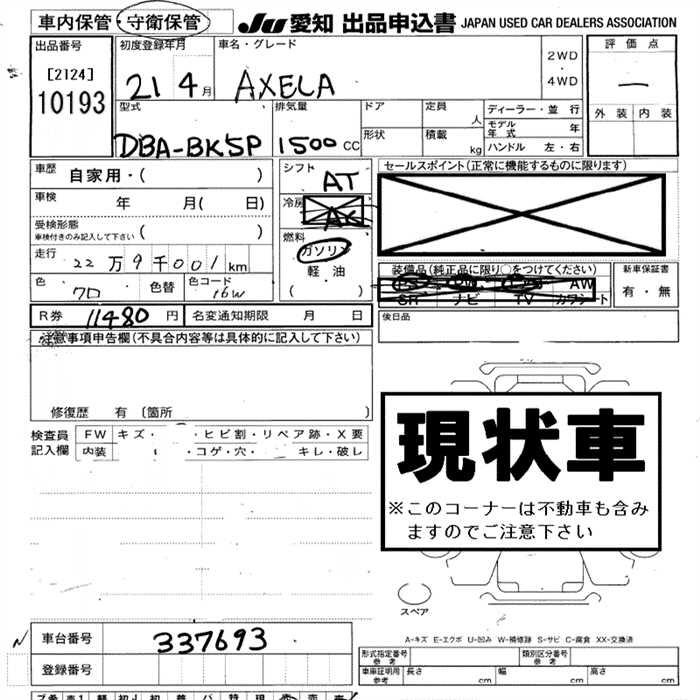 車内保管・守衛保管
JU 愛知 出品申込書 JAPAN USED CAR DEALERS ASSOCIATION
出品番号
[2124]
10193
初度登録年月
21 4月
車名・グレード
AXELA
2WD
・
4WD
評価点
―
外装 内装
型式
DBA-BK5P
排気量
1500 CC
ドア
形状
定員
人
積載
kg
ディーラー・並行
モデル年式 年
ハンドル 左・右
車歴 自家用・( )
車検 年 月( 日)
受検形態
車検付きのみ記入して下さい ( )
走行 22万9千001km
色 クロ
色替
色コード
16W
シフト
AT
冷房
AC
燃料
ガソリン
軽油
( )
セールスポイント(正常に機能するものに限ります)
装備品(純正品に限り○をつけてください)
PS PW AW
SR ナビ TV カワシート
新車保証書
有・無
R券 11480円
名変通知期限 月 日
後日品
注意事項申告欄(不具合内容等は具体的に記入して下さい)
修復歴 有〔箇所 〕
検査員
記入欄
FW キズ・ ・ヒビ割・リペア跡・X要
内装 ・コゲ・穴・ キレ・破レ
現状車
※このコーナーは不動車も含み
ますのでご注意下さい
スペア
A-キズ E-エクボ U-凹み W-補修跡 S-サビ C-腐食 XX-交換済
車台番号 337693
登録番号
形式指定番号
参考
類別区分番号
参考
車庫証明用
参考
長さ cm
幅 cm
高さ cm